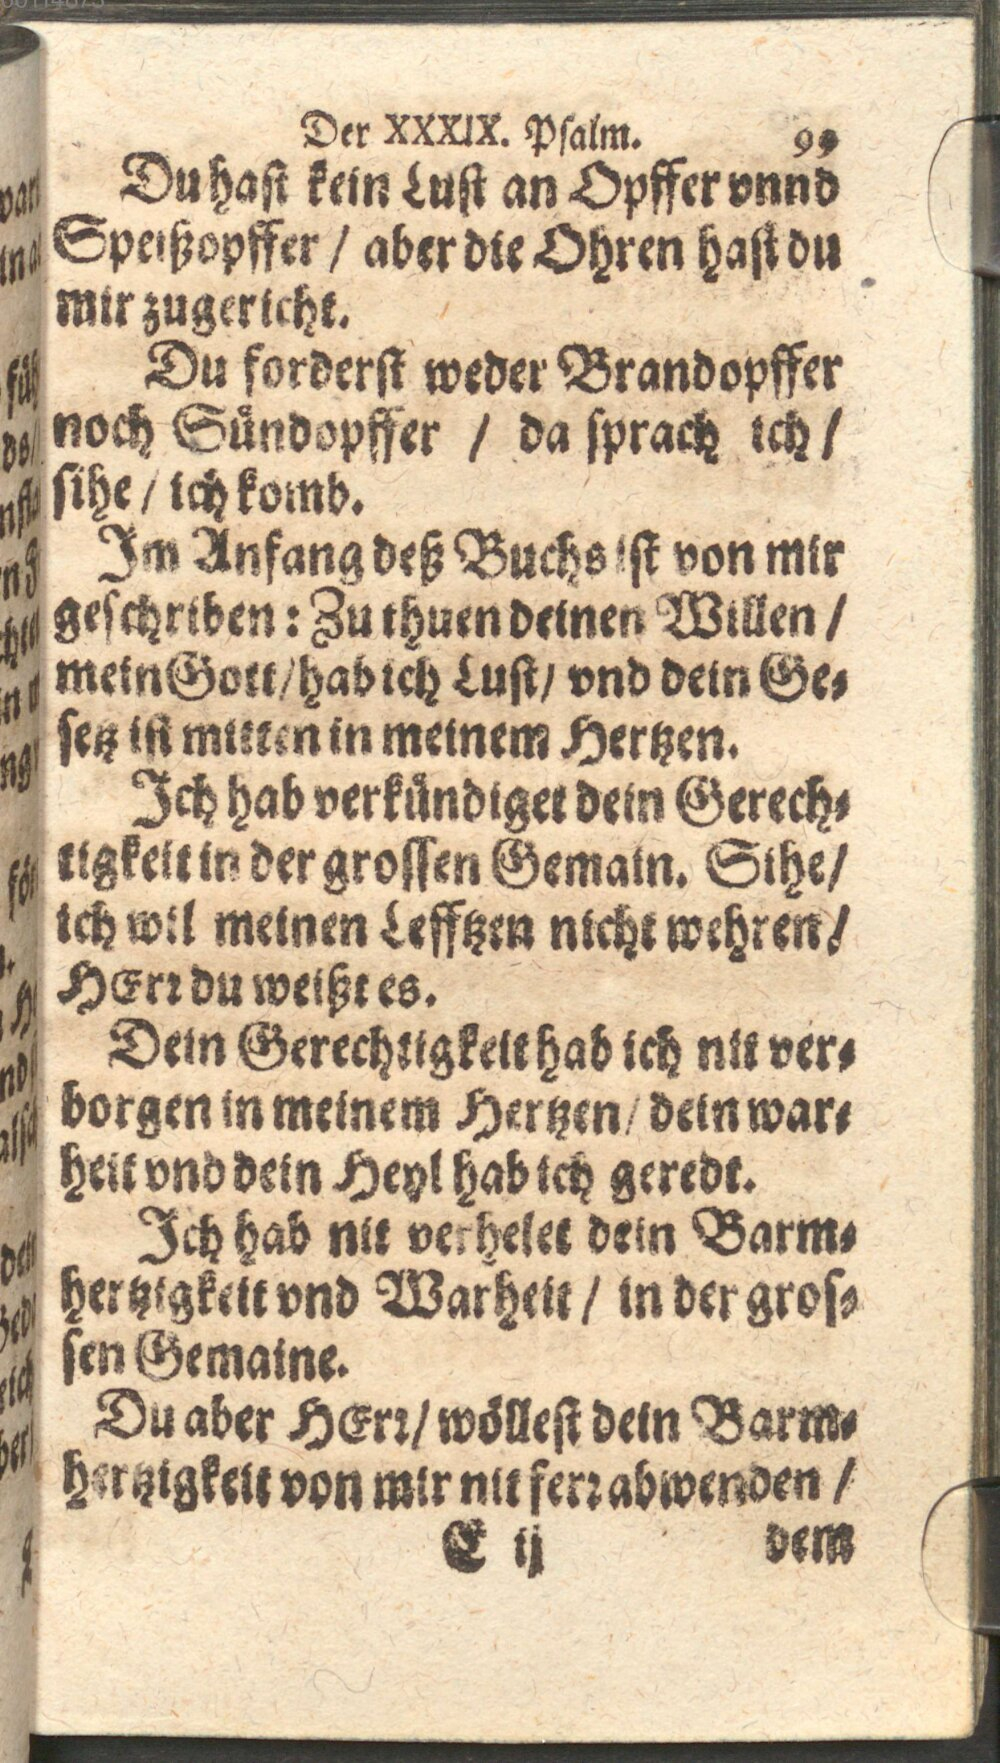 Der XXXIX. Psalm. 99
Du hast kein Lust an Opffer vnnd
Speißopffer / aber die Ohren hast du
mir zugericht.
Du forderst weder Brandopffer
noch Sündopffer / da sprach ich /
sihe / ich komb.
Im Anfang deß Buchs ist von mir
geschriben: Zu thuen deinen Willen /
mein Gott / hab ich Lust / vnd dein Ge-
setz ist mitten in meinem Hertzen.
Ich hab verkündiget dein Gerech-
tigkeit in der grossen Gemain. Sihe /
ich wil meinen Lefftzen nicht wehren /
HErr du weißt es.
Dein Gerechtigkeit hab ich nit ver-
borgen in meinem Hertzen / dein war-
heit vnd dein Heyl hab ich geredt.
Ich hab nit verhelet dein Barm-
hertzigkeit vnd Warheit / in der gros-
sen Gemaine.
Du aber HErr / wöllest dein Barm-
hertzigkeit von mir nit ferr abwenden /
E ij dem